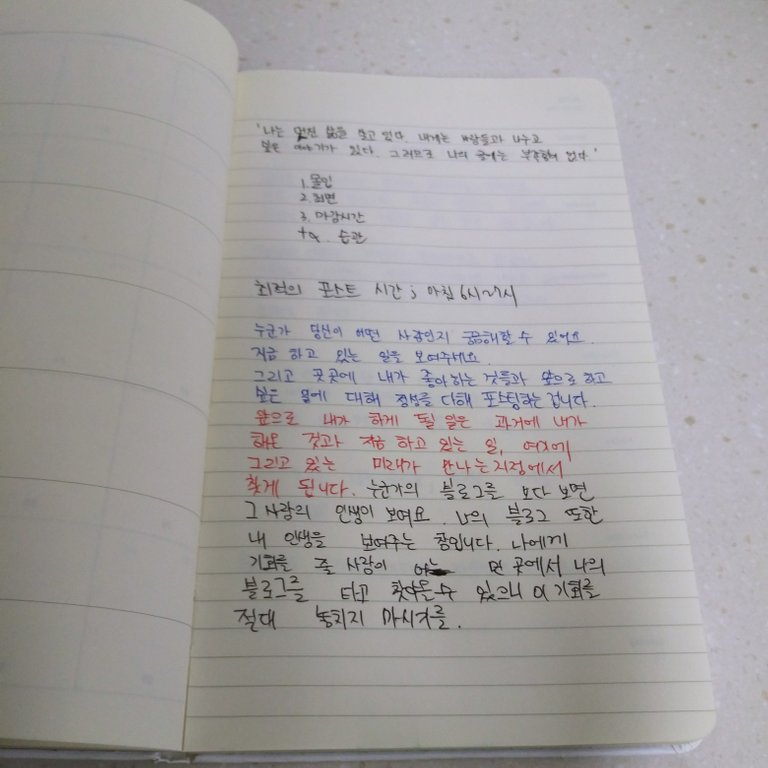 '나는 멋진 삶을 살고 있다. 내게는 사람들과 나누고
싶은 이야기가 있다. 그러므로 나의 글에는 부족함이 없다.'
1. 몰입
2. 최면
3. 마감시간
+α. 습관
최적의 포스트 시간 ; 아침 6시~7시
누군가 당신이 어떤 사람인지 궁금해할 수 있어요.
지금 하고 있는 일을 보여주세요.
그리고 곳곳에 내가 좋아하는 것들과 앞으로 하고
싶은 일에 대해 정성을 다해 포스팅하는 겁니다.
앞으로 내가 하게 될 일은 과거에 내가
해온 것과 지금 하고 있는 일, 여기에
그리고 있는 미래가 만나는 지점에서
찾게 됩니다. 누군가의 블로그를 보다 보면
그 사람의 인생이 보여요. 나의 블로그 또한
내 인생을 보여주는 창입니다. 나에게
기회를 줄 사람이 먼 곳에서 나의
블로그를 타고 찾아올 수 있으니 이 기회를
절대 놓치지 마시기를.